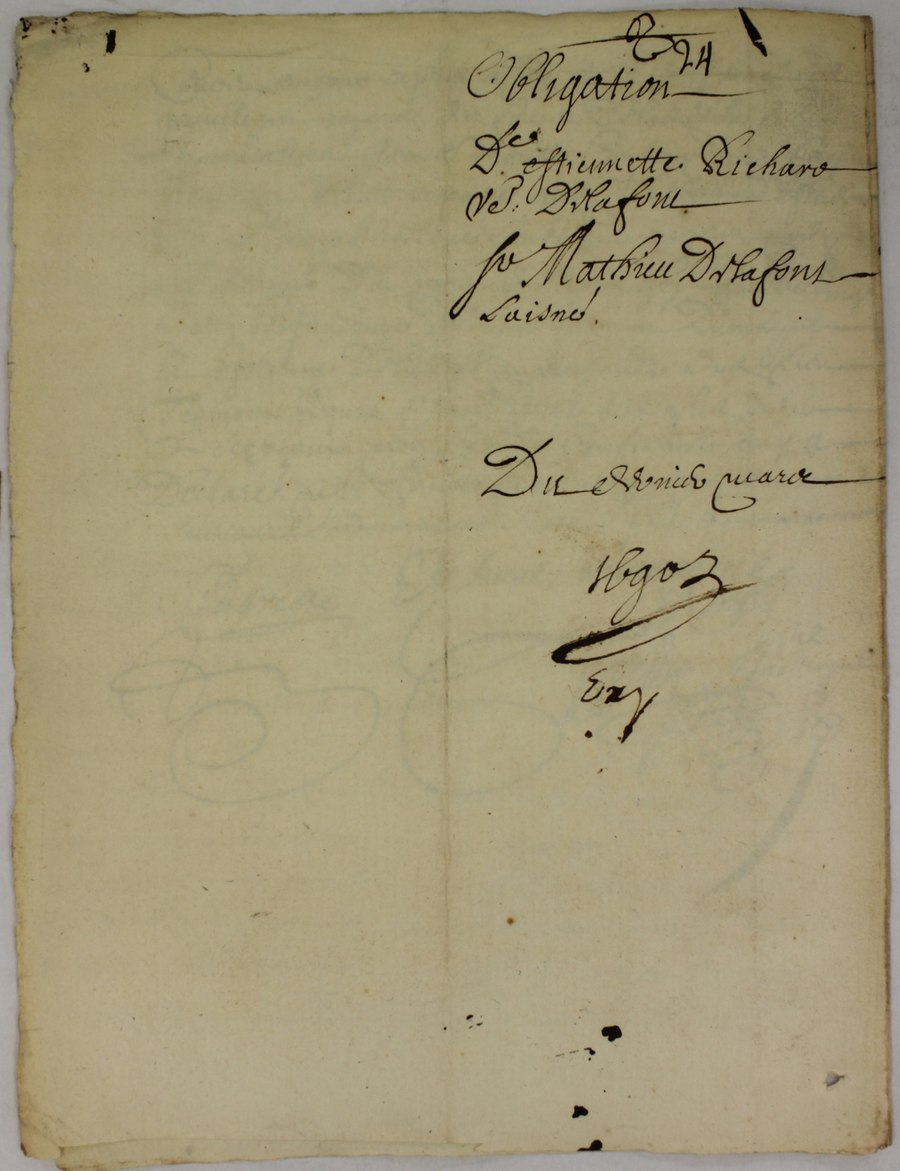 24
Obligation
De estiennette Richard
ve. Delafont
sr Mathieu Delafont
Laisné.
Du mars
1690